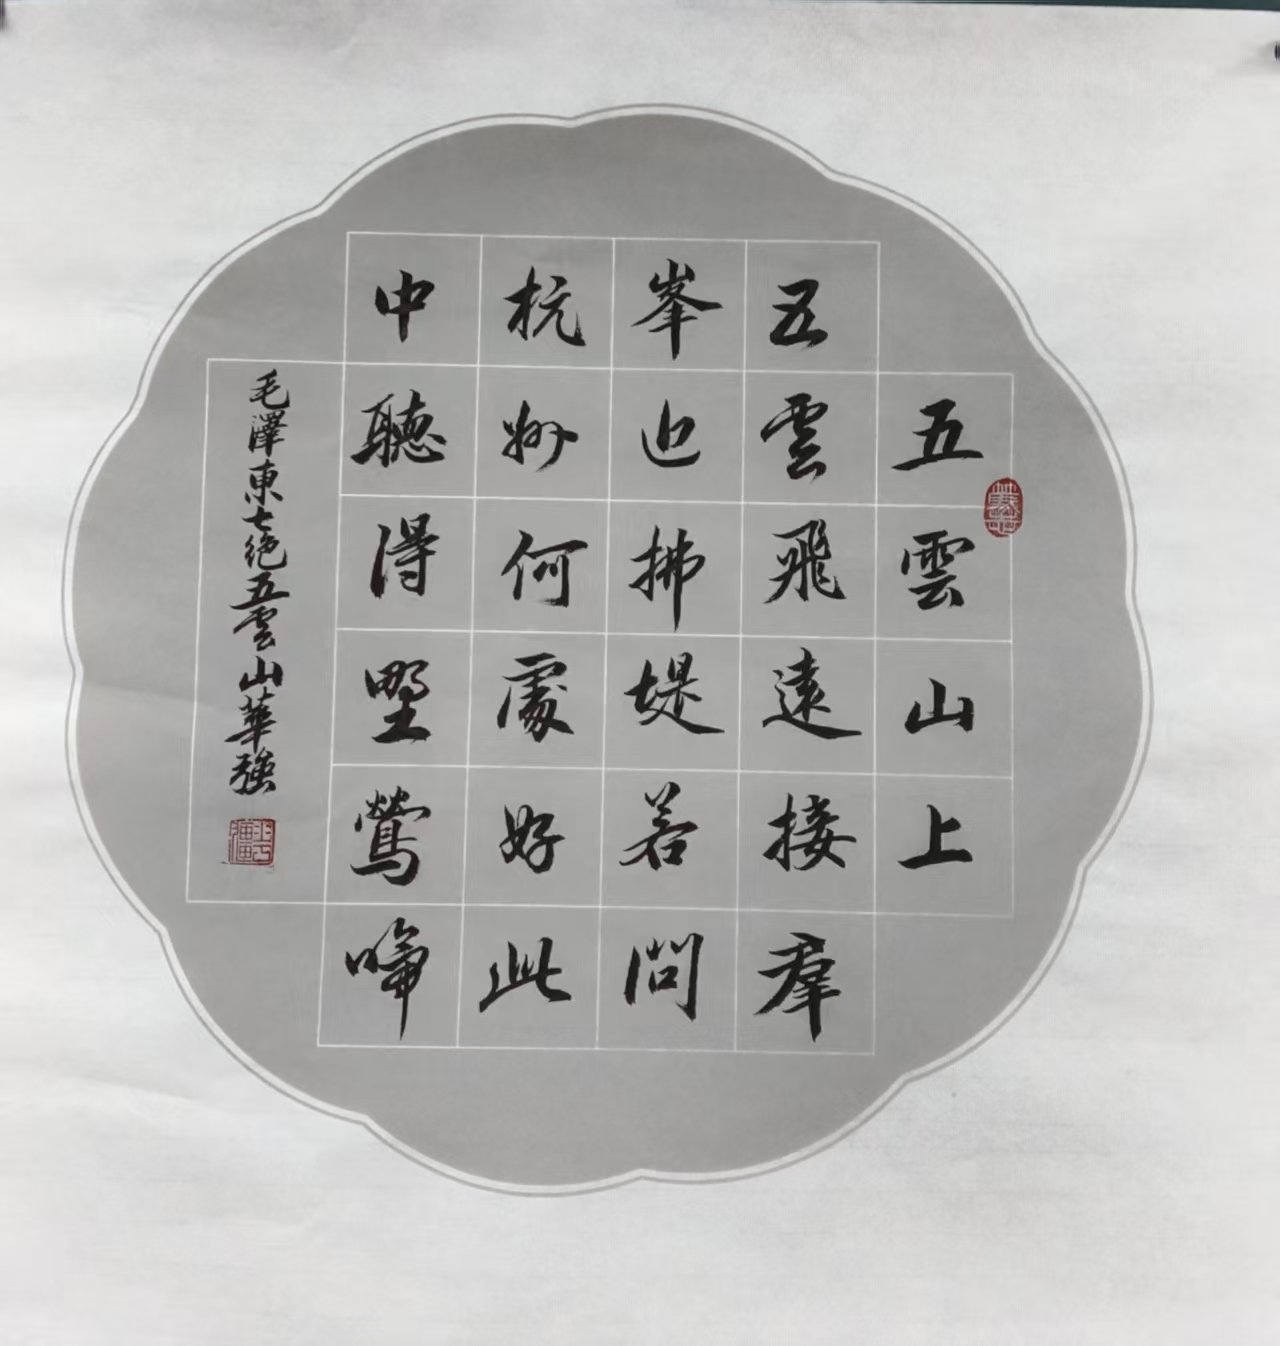 五雲山上
五雲飛遠接羣
峯近拂堤若問
杭州何處好此
中聽得野鶯啼
毛澤東七絕五雲山華強